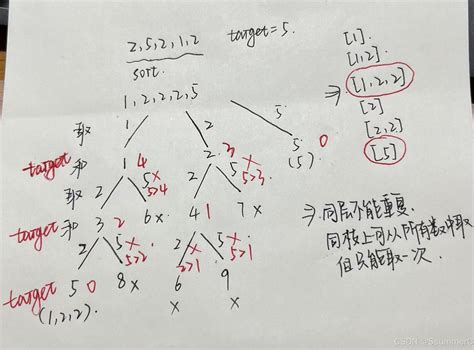 2,5,2,1,2 target=5.
sort.
1,2,2,2,5
取 1 2 5
target 和 1 4 2 3 5 0
(5)
取 2 5 x 5>4 2 5 x 5>3
target 和 3 2 6x 4 1 7x
2 5 x 5>2 2 x 2>1 5 x 5>1
target 5 0 8x 6 9
(1,2,2) x x
[1]
[1,2]
⇒ [1,2,2]
[2]
[2,2]
[5]
⇒ 同层不能重复.
同枝上可从所有数中取
但只能取一次.
CSDN @Ssummer